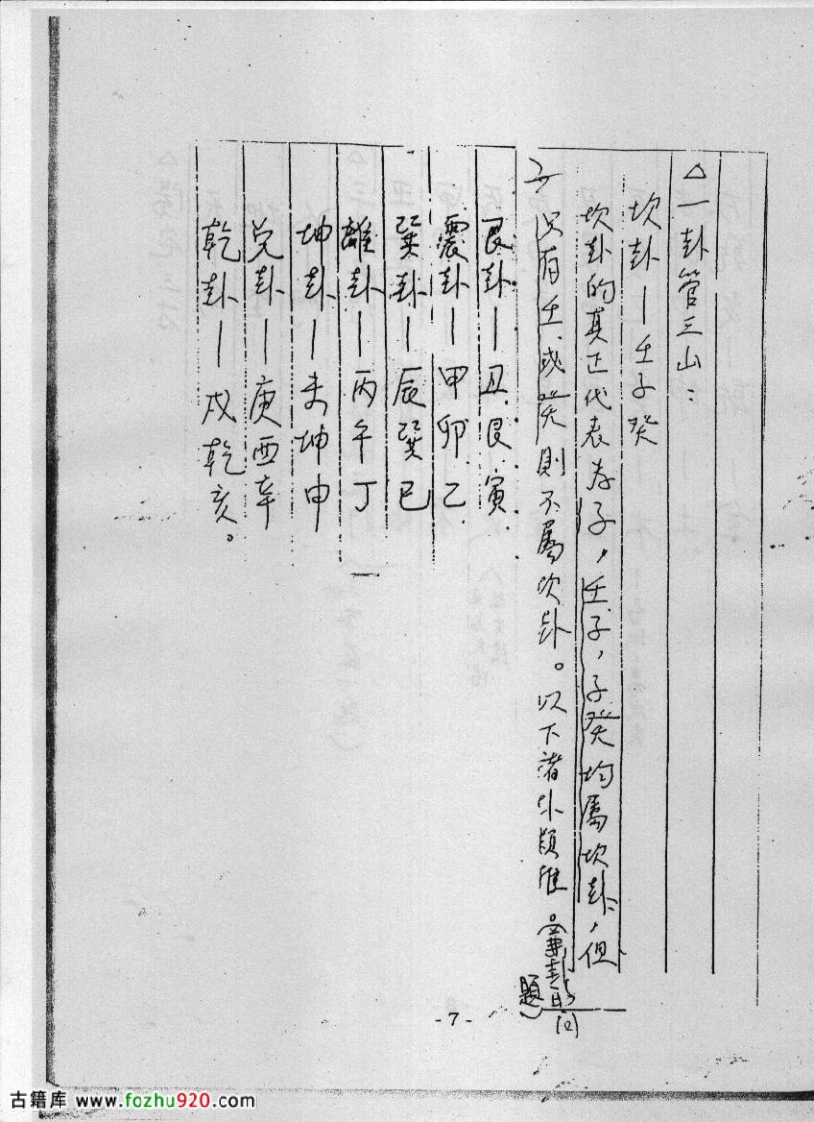 △一卦管三山：
坎卦—壬子癸
坎卦的真正代表为子，壬子，子癸均属坎卦，但
只有壬或癸则不属坎卦。以下诸卦类推。
题
艮卦—丑艮寅
震卦—甲卯乙
巽卦—辰巽巳
離卦—丙午丁
坤卦—未坤申
兑卦—庚酉辛
乾卦—戌乾亥。
-7-
古籍库 www.fozhu920.com